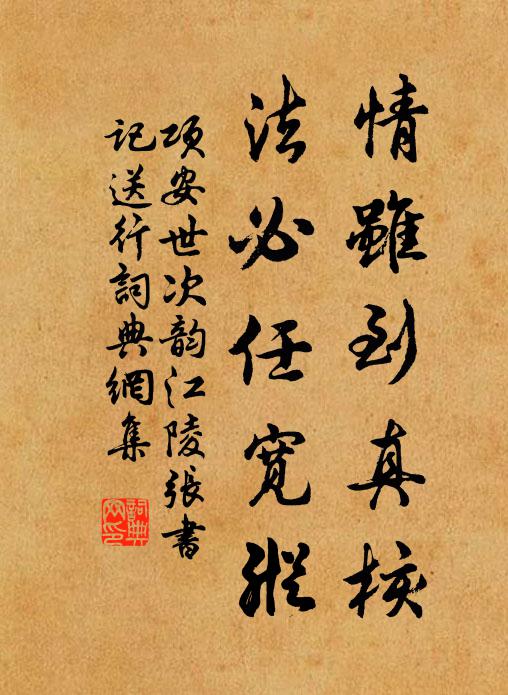 情雖到真核
法必任寬縱
項安世次韵江陵張書
記送行詞典網集
詞典网印